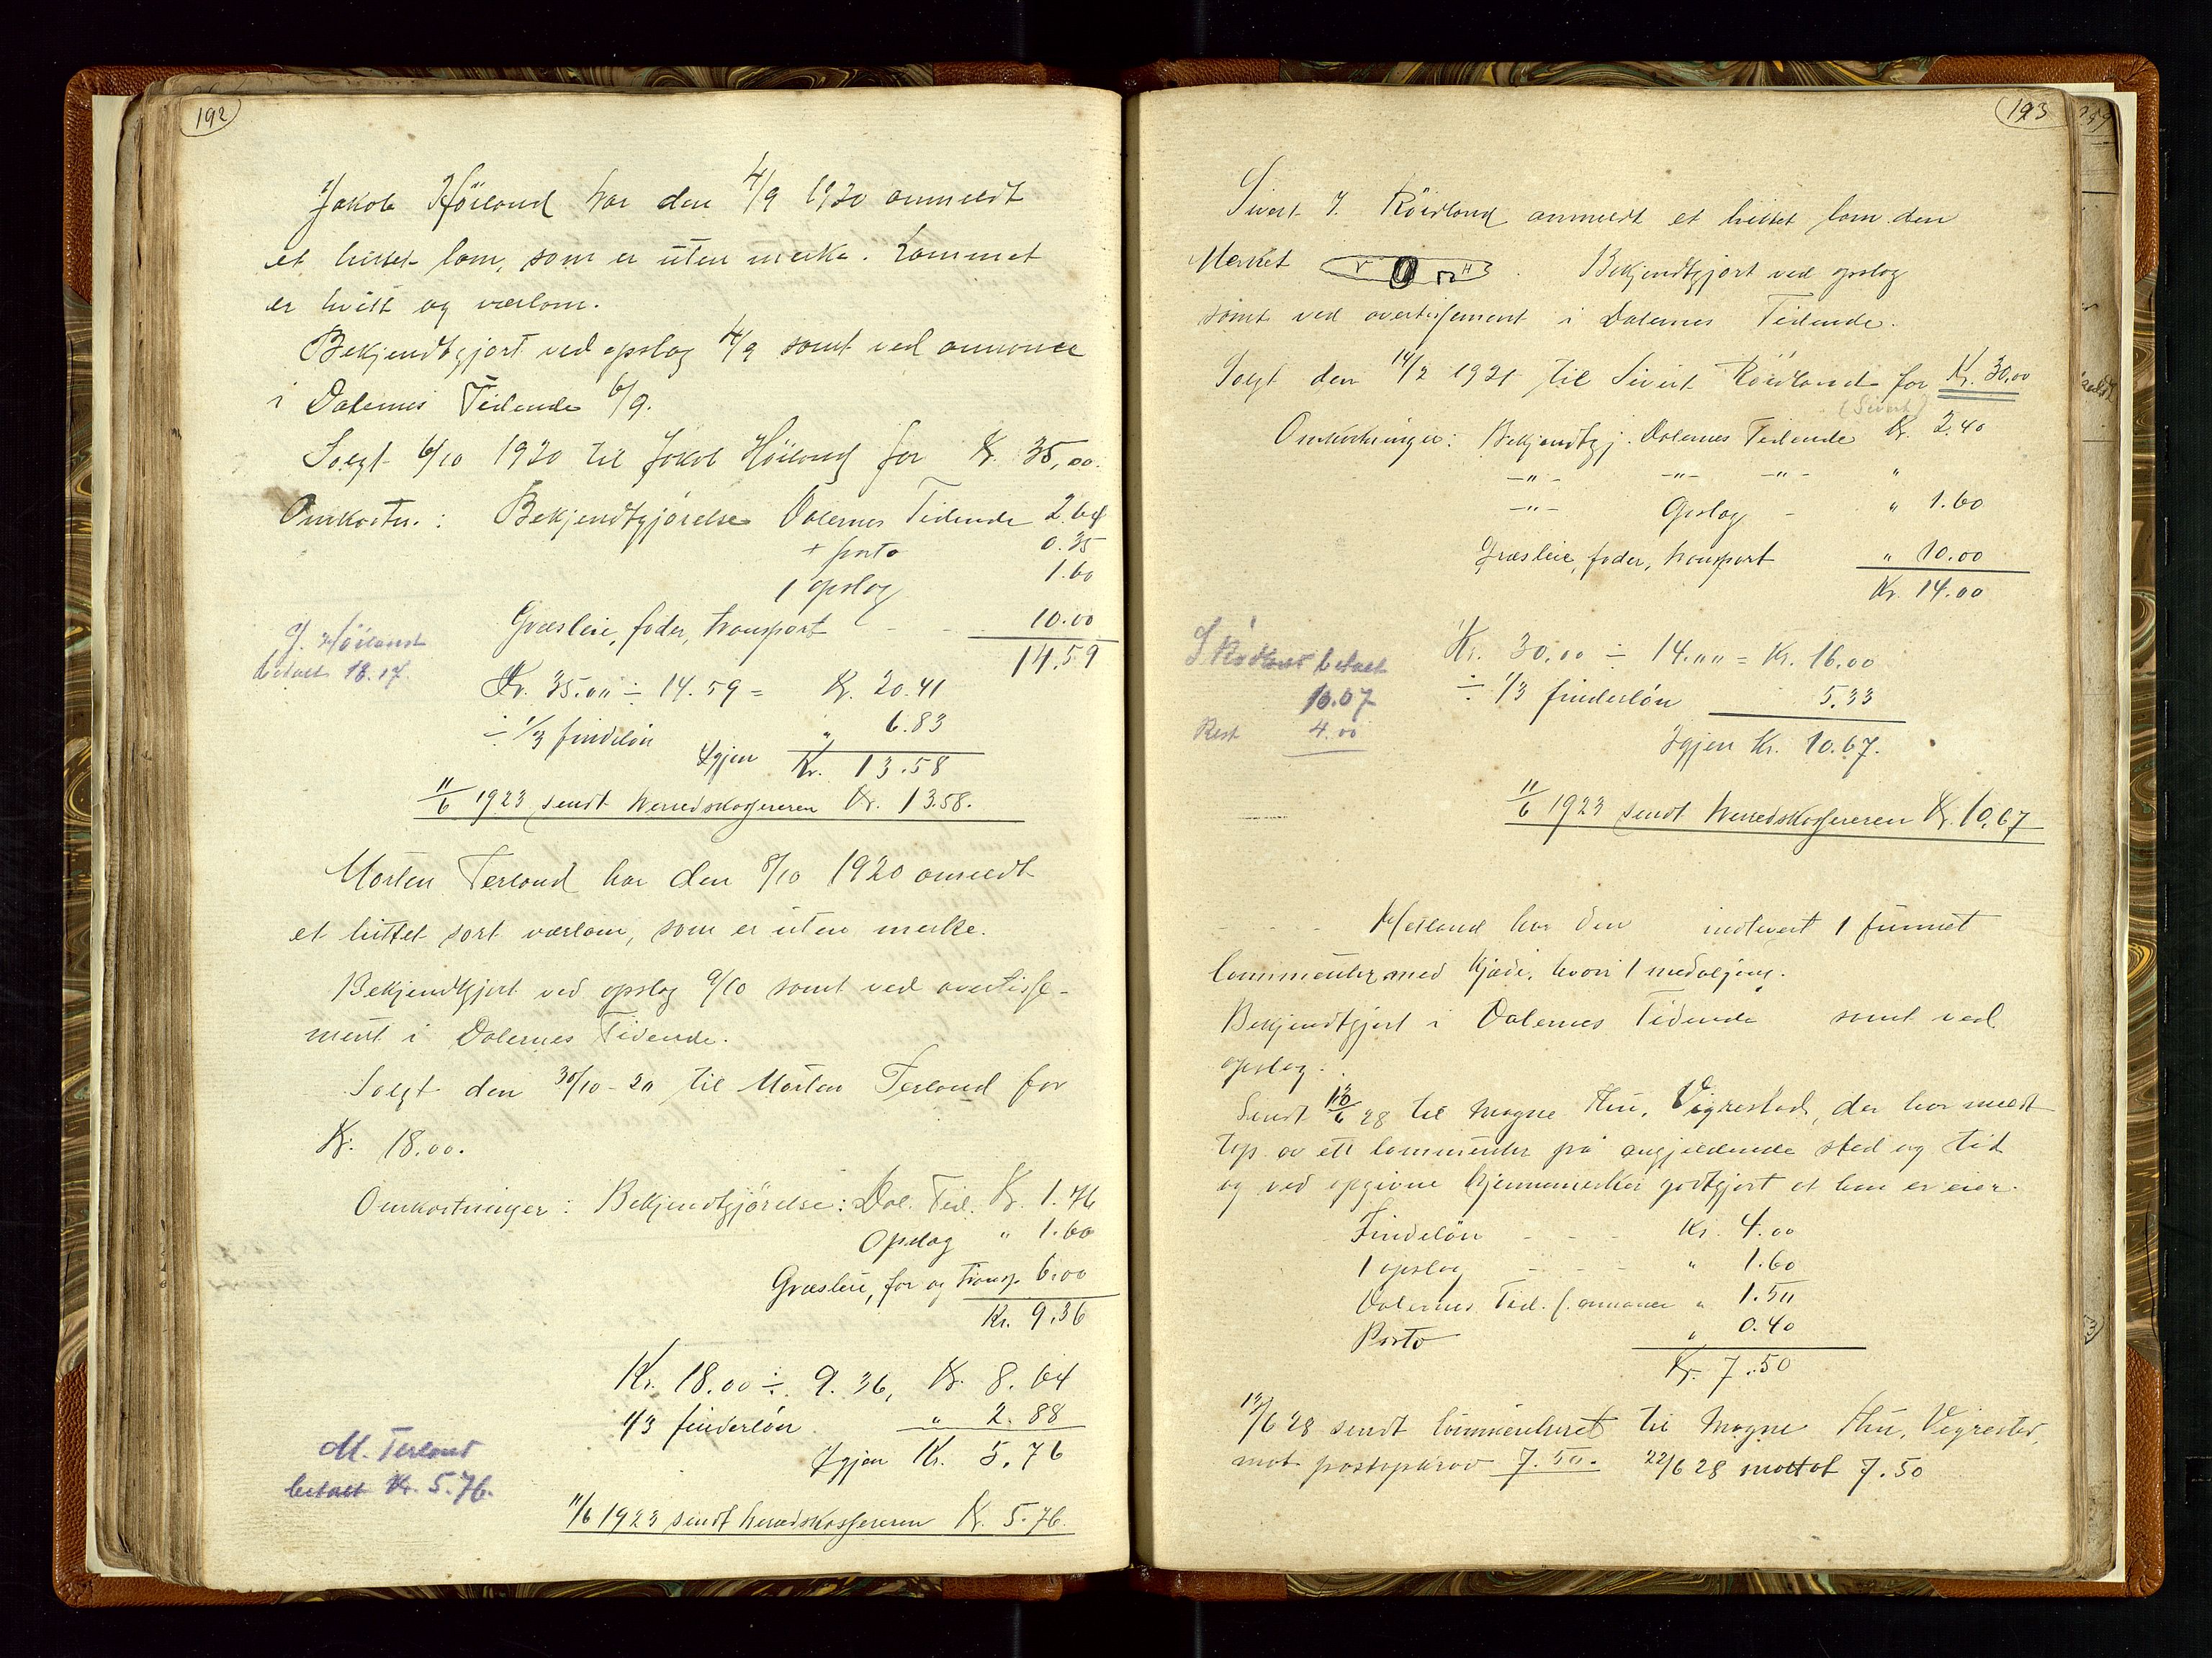 192
Jakob Höiland har den 4/9 1920 anmeldt
et hittet lam, som er uten merke. Lammet
er hvitt og værlam.
Bekjendtgjort ved opslag 4/9 samt ved annonce
i Dalernes Tidende 6/9.
Solgt 6/10 1920 til Jakob Höiland for Kr. 35,00.
Omkostn.: Bekjendtgjörelse Dalernes Tidende 2.64
+ porto 0.35
1 opslag 1.60
Græsleie, foder, transport - - 10.00
14.59
J. Höiland
betalt 18.17.
Kr. 35.00 ÷ 14.59 = Kr. 20.41
÷ 1/3 findelön " 6.83
Igjen Kr. 13.58
11/6 1923 sendt herredskassereren Kr. 13.58.
Morten Terland har den 8/10 1920 anmeldt
et hittet sort værlam, som er uten merke.
Bekjendtgjort ved opslag 9/10 samt ved avertisse-
ment i Dalernes Tidende.
Solgt den 30/10 - 20 til Morten Terland for
Kr. 18.00.
Omkostninger: Bekjendtgjörelse: Dal. Tid. Kr. 1.76
Opslag " 1.60
Græsleie, for og transp. 6.00
Kr. 9.36
Kr. 18.00 ÷ 9.36, Kr. 8.64
1/3 finderlön " 2.88
Igjen Kr. 5.76
M. Terland
betalt Kr. 5.76.
11/6 1923 sendt herredskassereren Kr. 5.76.
193
Sivert J. Röidland anmeldt et hittet lam den
Merket . Bekjendtgjort ved opslag
samt ved avertissement i Dalernes Tidende.
Solgt den 14/2 1921 til Sivert Röidland for Kr. 30,00
(Sivert)
Omkostninger: Bekjendtgj. Dalernes Tidende Kr. 2.40
-"- -"- -"- "
-"- Opslag - " 1.60
Græsleie, foder, transport " 10.00
Kr. 14.00
betalt
10.67
Rest 4.00
Kr. 30.00 ÷ 14.00 = Kr. 16.00
÷ 1/3 finderlön 5.33
Igjen Kr. 10.67.
11/6 1923 sendt herredskassereren Kr. 10.67
- - - - Hetland har den indlevert 1 funnet
lommeuhr med kjæde, hvori 1 medaljong.
Bekjendtgjort i Dalernes Tidende samt ved
opslag.
Sendt 13/6 28 til Magne Thu, Vigrestad, der har meldt
tap av ett lommeuhr på angjeldende sted og tid
og ved opgivne kjennemerker godtgjort at han er eier.
Findelön - - - Kr. 4.00
1 opslag - - - " 1.60
Dalernes Tid. f. annonce " 1.50
Porto " 0.40
Kr. 7.50
13/6 28 sendt lommeuhret til Magne Thu, Vigrestad,
mot postopkrav 7.50. 22/6 28 mottat 7.50